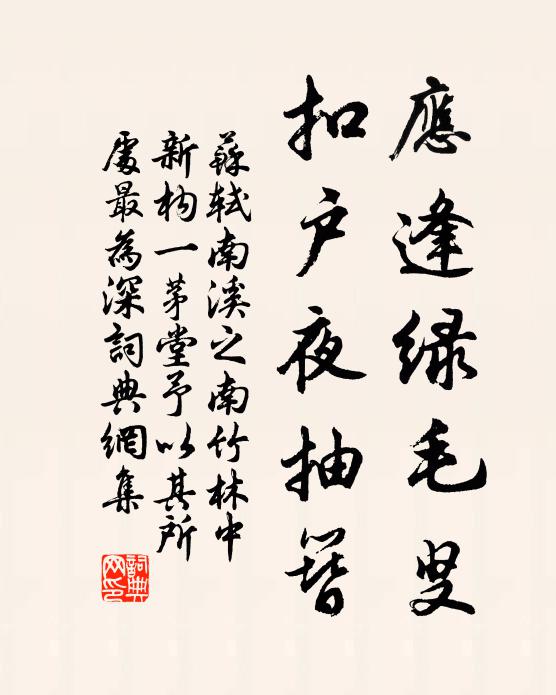 應逢緑毛叟
扣户夜抽簪
蘇軾南溪之南竹林中
新构一茅堂予以其所
處最為深詞典網集
詞典
网印